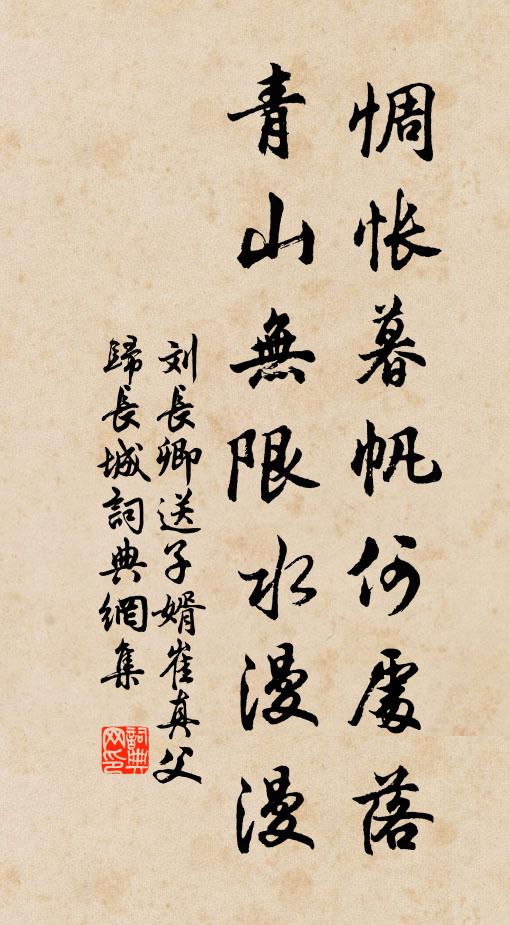 惆悵暮帆何處落
青山無限水漫漫
刘長卿送子婿崔真父
歸長城詞典網集
詞典
网印